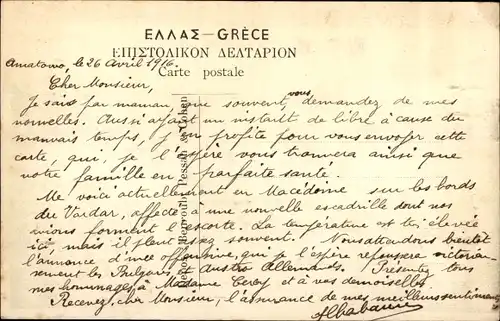 ΕΛΛΑΣ—GRÈCE
ΕΠΙΣΤΟΛΙΚΟΝ ΔΕΛΤΑΡΙΟΝ
Carte postale
Amatovo, le 26 Avril 1916.
Cher Monsieur,
Je sais par maman, que souvent, vous demandez de mes
nouvelles. Aussi ayant un instant de libre à cause du
mauvais temps, j'en profite pour vous envoyer cette
carte, qui, je l'espère vous trouvera ainsi que
votre famille en parfaite santé.
Me voici actuellement en Macédoine sur les bords
du Vardar, affecté à une nouvelle escadrille dont nos
avions forment l'escorte. La température est très élevée
ici, mais il pleut assez souvent. Nous attendons bientôt
l'annonce d'une offensive, qui je l'espère repoussera victorieu-
sement les Bulgares et Austro Allemands. Présentez tous
mes hommages à Madame et à vos demoiselles
Recevez, cher Monsieur, l'assurance de mes meilleurs sentiments